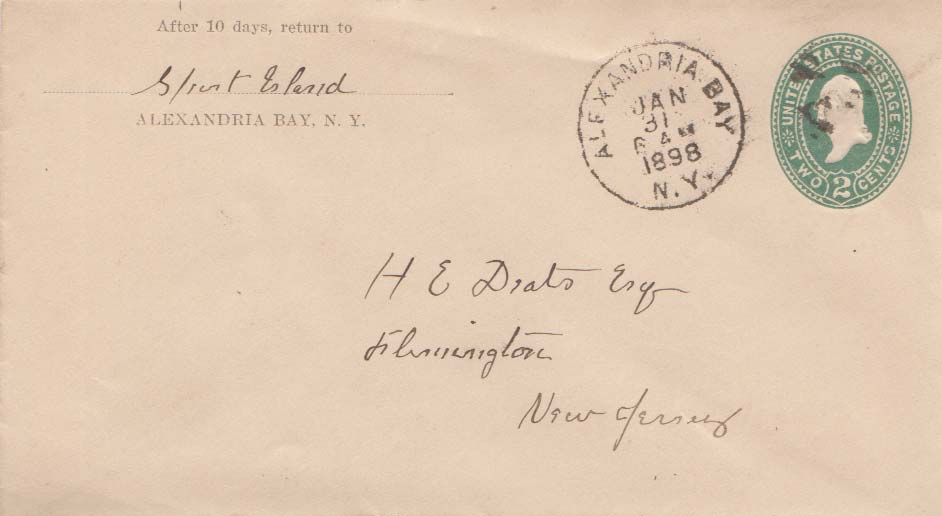 After 10 days, return to
Sport Island
ALEXANDRIA BAY, N. Y.
ALEXANDRIA BAY
JAN
31
4
1898
N.Y.
UNITED STATES POSTAGE
TWO 2 CENTS
H E Deats Esq
Flemington
New Jersey